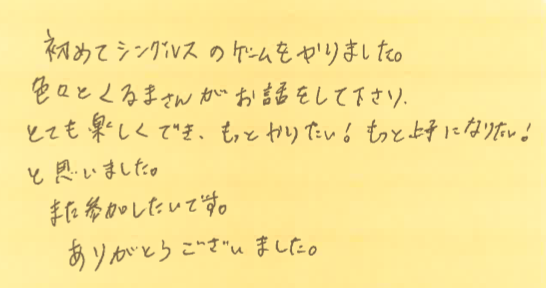 初めてシングルスのゲームをやりました。
色々とくるまさんがお話をして下さり、
とても楽しくでき、もっとやりたい!もっと上手になりたい!
と思いました。
また参加したいです。
ありがとうございました。